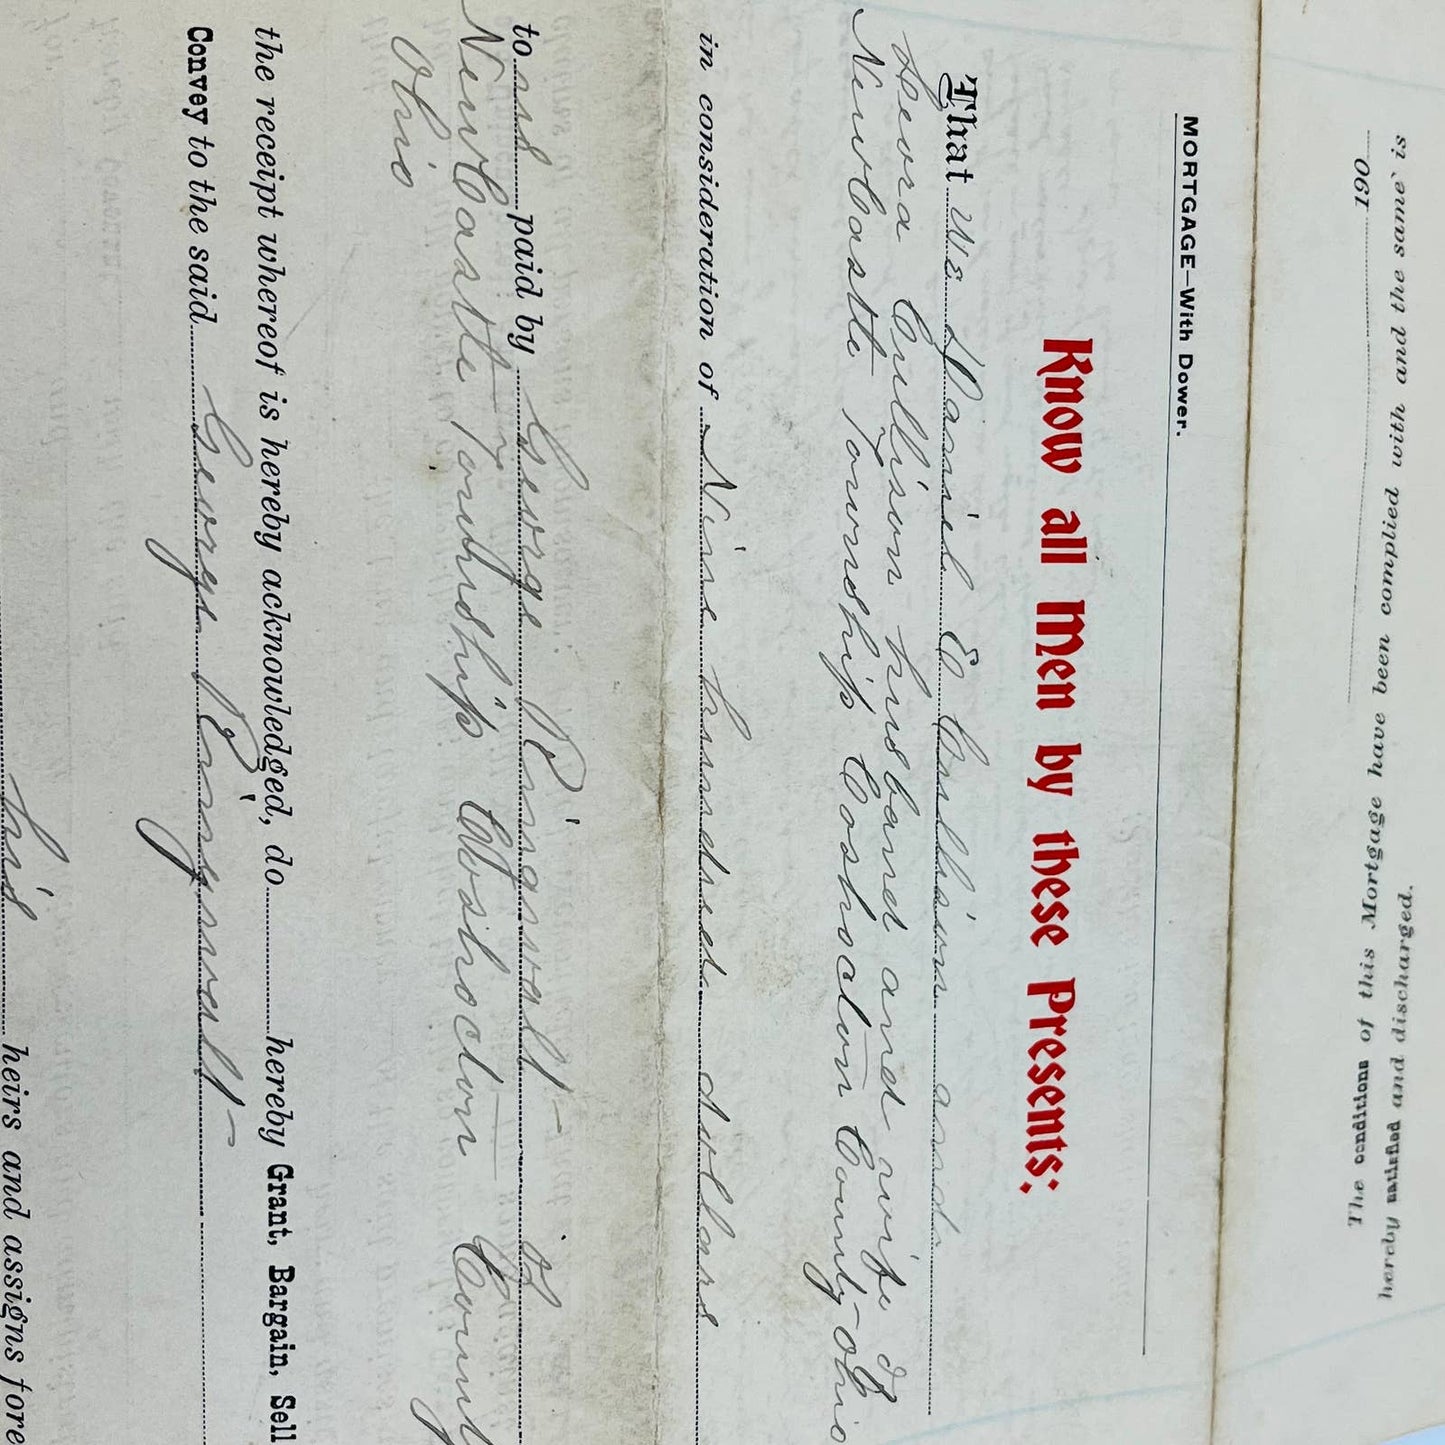 The conditions of this Mortgage have been complied with and the same is
hereby satisfied and discharged.
190
MORTGAGE—With Dower.
Know all Men by these Presents:
That We Daniel E Cullison and
Cullison husband and wife of
NewCastle Township Coshocton County Ohio
in consideration of Nine hundred dollars
to paid by George Ringwalt of
NewCastle Township Coshocton County
Ohio
the receipt whereof is hereby acknowledged, do hereby Grant, Bargain, Sell
Convey to the said George Ringwalt
his heirs and assigns fore